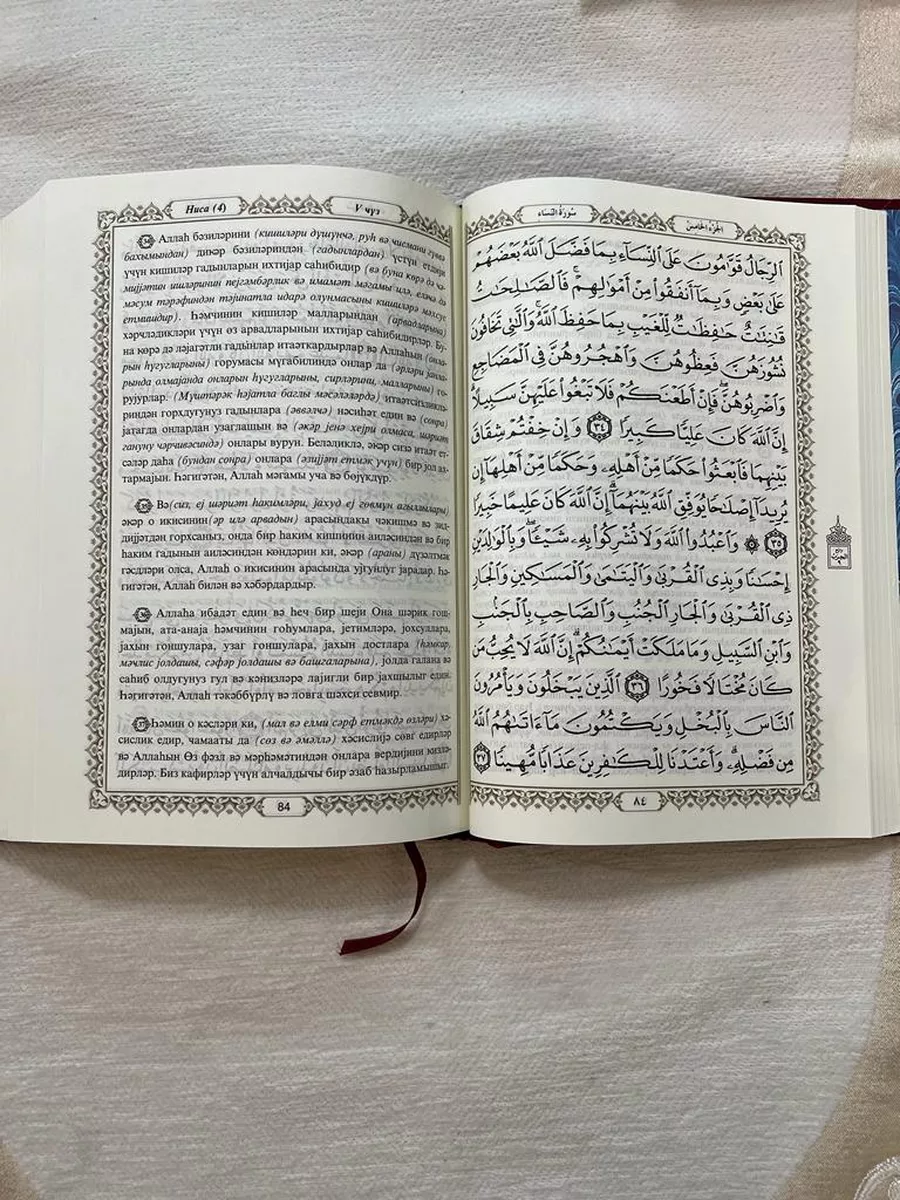 Ниса (4)
V чүз
34 Аллаһ бәзиләрини (кишиләри дүшүнчә, руһ вә чисмани гүввә
бахымындан) дикәр бәзиләриндән (гадынлардан) үстүн етдији
үчүн кишиләр гадынларын ихтијар саһибидир (вә буна көрә дә ҹә-
мијјәтин ишләринин пејғәмбәрлик вә имамәт мәгамы илә, еләҹә дә
мәсум тәрәфиндән тәјинатла идарә олунмасыны кишиләрә мәхсус
етмишдир). Һәмчинин кишиләр малларындан (арвадларына)
хәрҹләдикләри үчүн өз арвадларынын ихтијар саһибидирләр. Бу-
на көрә дә ләјагәтли гадынлар итаәткардырлар вә Аллаһын (онла-
рын һүгугларыны) горумасы мүгабилиндә онлар да (әрләри јанла-
рында олмајанда онларын һүгугларыны, сирләрини, малларыны) го-
рујурлар. (Мүштәрәк һәјатла бағлы мәсәләләрдә) итаәтсизликлә-
риндән горхдуғунуз гадынлара (әввәлҹә) нәсиһәт един вә (сонра)
јатагда онлардан узаглашын вә (әкәр јенә хејри олмаса, шәриәт
гануну чәрчивәсиндә) онлары вурун. Беләликлә, әкәр сизә итаәт ет-
сәләр даһа (бундан сонра) онлара (әзијјәт етмәк үчүн) бир јол ах-
тармајын. Һәгигәтән, Аллаһ мәгамы уҹа вә бөјүкдүр.
35 Вә(сиз, еј шәриәт һакимләри, јахуд еј говмун ағбирчәкләри)
әкәр о икисинин(әр илә арвадын) арасындакы чәкишмә вә зид-
дијјәтдән горхсаныз, онда бир һаким кишинин аиләсиндән вә бир
һаким гадынын аиләсиндән көндәрин ки, әкәр (араны) дүзәлтмәк
гәсдләри олса, Аллаһ о икисинин арасында ујғунлуг јарадар. Һә-
гигәтән, Аллаһ билән вә хәбәрдардыр.
36 Аллаһа ибадәт един вә һеч бир шеји Она шәрик гош-
мајын, ата-анаја һәмчинин гоһумлара, јетимләрә, јохсуллара,
јахын гоншулара, узаг гоншулара, јахын достлара (һәмкар,
мәҹлис јолдашы, сәфәр јолдашы вә башгаларына), јолда галана вә
саһиб олдуғунуз гул вә кәнизләрә лајигли бир јахшылыг един.
Һәгигәтән, Аллаһ тәкәббүрлү вә ловға шәхси севмир.
37 Һәмин о кәсләри ки, (мал вә елми сәрф етмәкдә өзләри) хә-
сислик едир, ҹамааты да (сөз вә әмәллә) хәсислијә сөвг едирләр
вә Аллаһын Өз фәзл вә мәрһәмәтиндән онлара вердијини кизлә-
дирләр. Биз кафирләр үчүн алчалдыҹы бир әзаб һазырламышыг.
84
سورة النساء
الجزء الخامس
الرِّجَالُ قَوَّامُونَ عَلَى النِّسَاءِ بِمَا فَضَّلَ اللَّهُ بَعْضَهُمْ
عَلَىٰ بَعْضٍ وَبِمَا أَنفَقُوا مِنْ أَمْوَالِهِمْ ۚ فَالصَّالِحَاتُ
قَانِتَاتٌ حَافِظَاتٌ لِّلْغَيْبِ بِمَا حَفِظَ اللَّهُ ۚ وَاللَّاتِي تَخَافُونَ
نُشُوزَهُنَّ فَعِظُوهُنَّ وَاهْجُرُوهُنَّ فِي الْمَضَاجِعِ
وَاضْرِبُوهُنَّ ۖ فَإِنْ أَطَعْنَكُمْ فَلَا تَبْغُوا عَلَيْهِنَّ سَبِيلًا ۗ
إِنَّ اللَّهَ كَانَ عَلِيًّا كَبِيرًا ٣٤ وَإِنْ خِفْتُمْ شِقَاقَ
بَيْنِهِمَا فَابْعَثُوا حَكَمًا مِّنْ أَهْلِهِ وَحَكَمًا مِّنْ أَهْلِهَا إِن
يُرِيدَا إِصْلَاحًا يُوَفِّقِ اللَّهُ بَيْنَهُمَا ۗ إِنَّ اللَّهَ كَانَ عَلِيمًا خَبِيرًا
٣٥ ۞ وَاعْبُدُوا اللَّهَ وَلَا تُشْرِكُوا بِهِ شَيْئًا ۖ وَبِالْوَالِدَيْنِ
إِحْسَانًا وَبِذِي الْقُرْبَىٰ وَالْيَتَامَىٰ وَالْمَسَاكِينِ وَالْجَارِ
ذِي الْقُرْبَىٰ وَالْجَارِ الْجُنُبِ وَالصَّاحِبِ بِالْجَنبِ
وَابْنِ السَّبِيلِ وَمَا مَلَكَتْ أَيْمَانُكُمْ ۗ إِنَّ اللَّهَ لَا يُحِبُّ مَن
كَانَ مُخْتَالًا فَخُورًا ٣٦ الَّذِينَ يَبْخَلُونَ وَيَأْمُرُونَ
النَّاسَ بِالْبُخْلِ وَيَكْتُمُونَ مَا آتَاهُمُ اللَّهُ
مِن فَضْلِهِ ۗ وَأَعْتَدْنَا لِلْكَافِرِينَ عَذَابًا مُّهِينًا ٣٧
٨٤